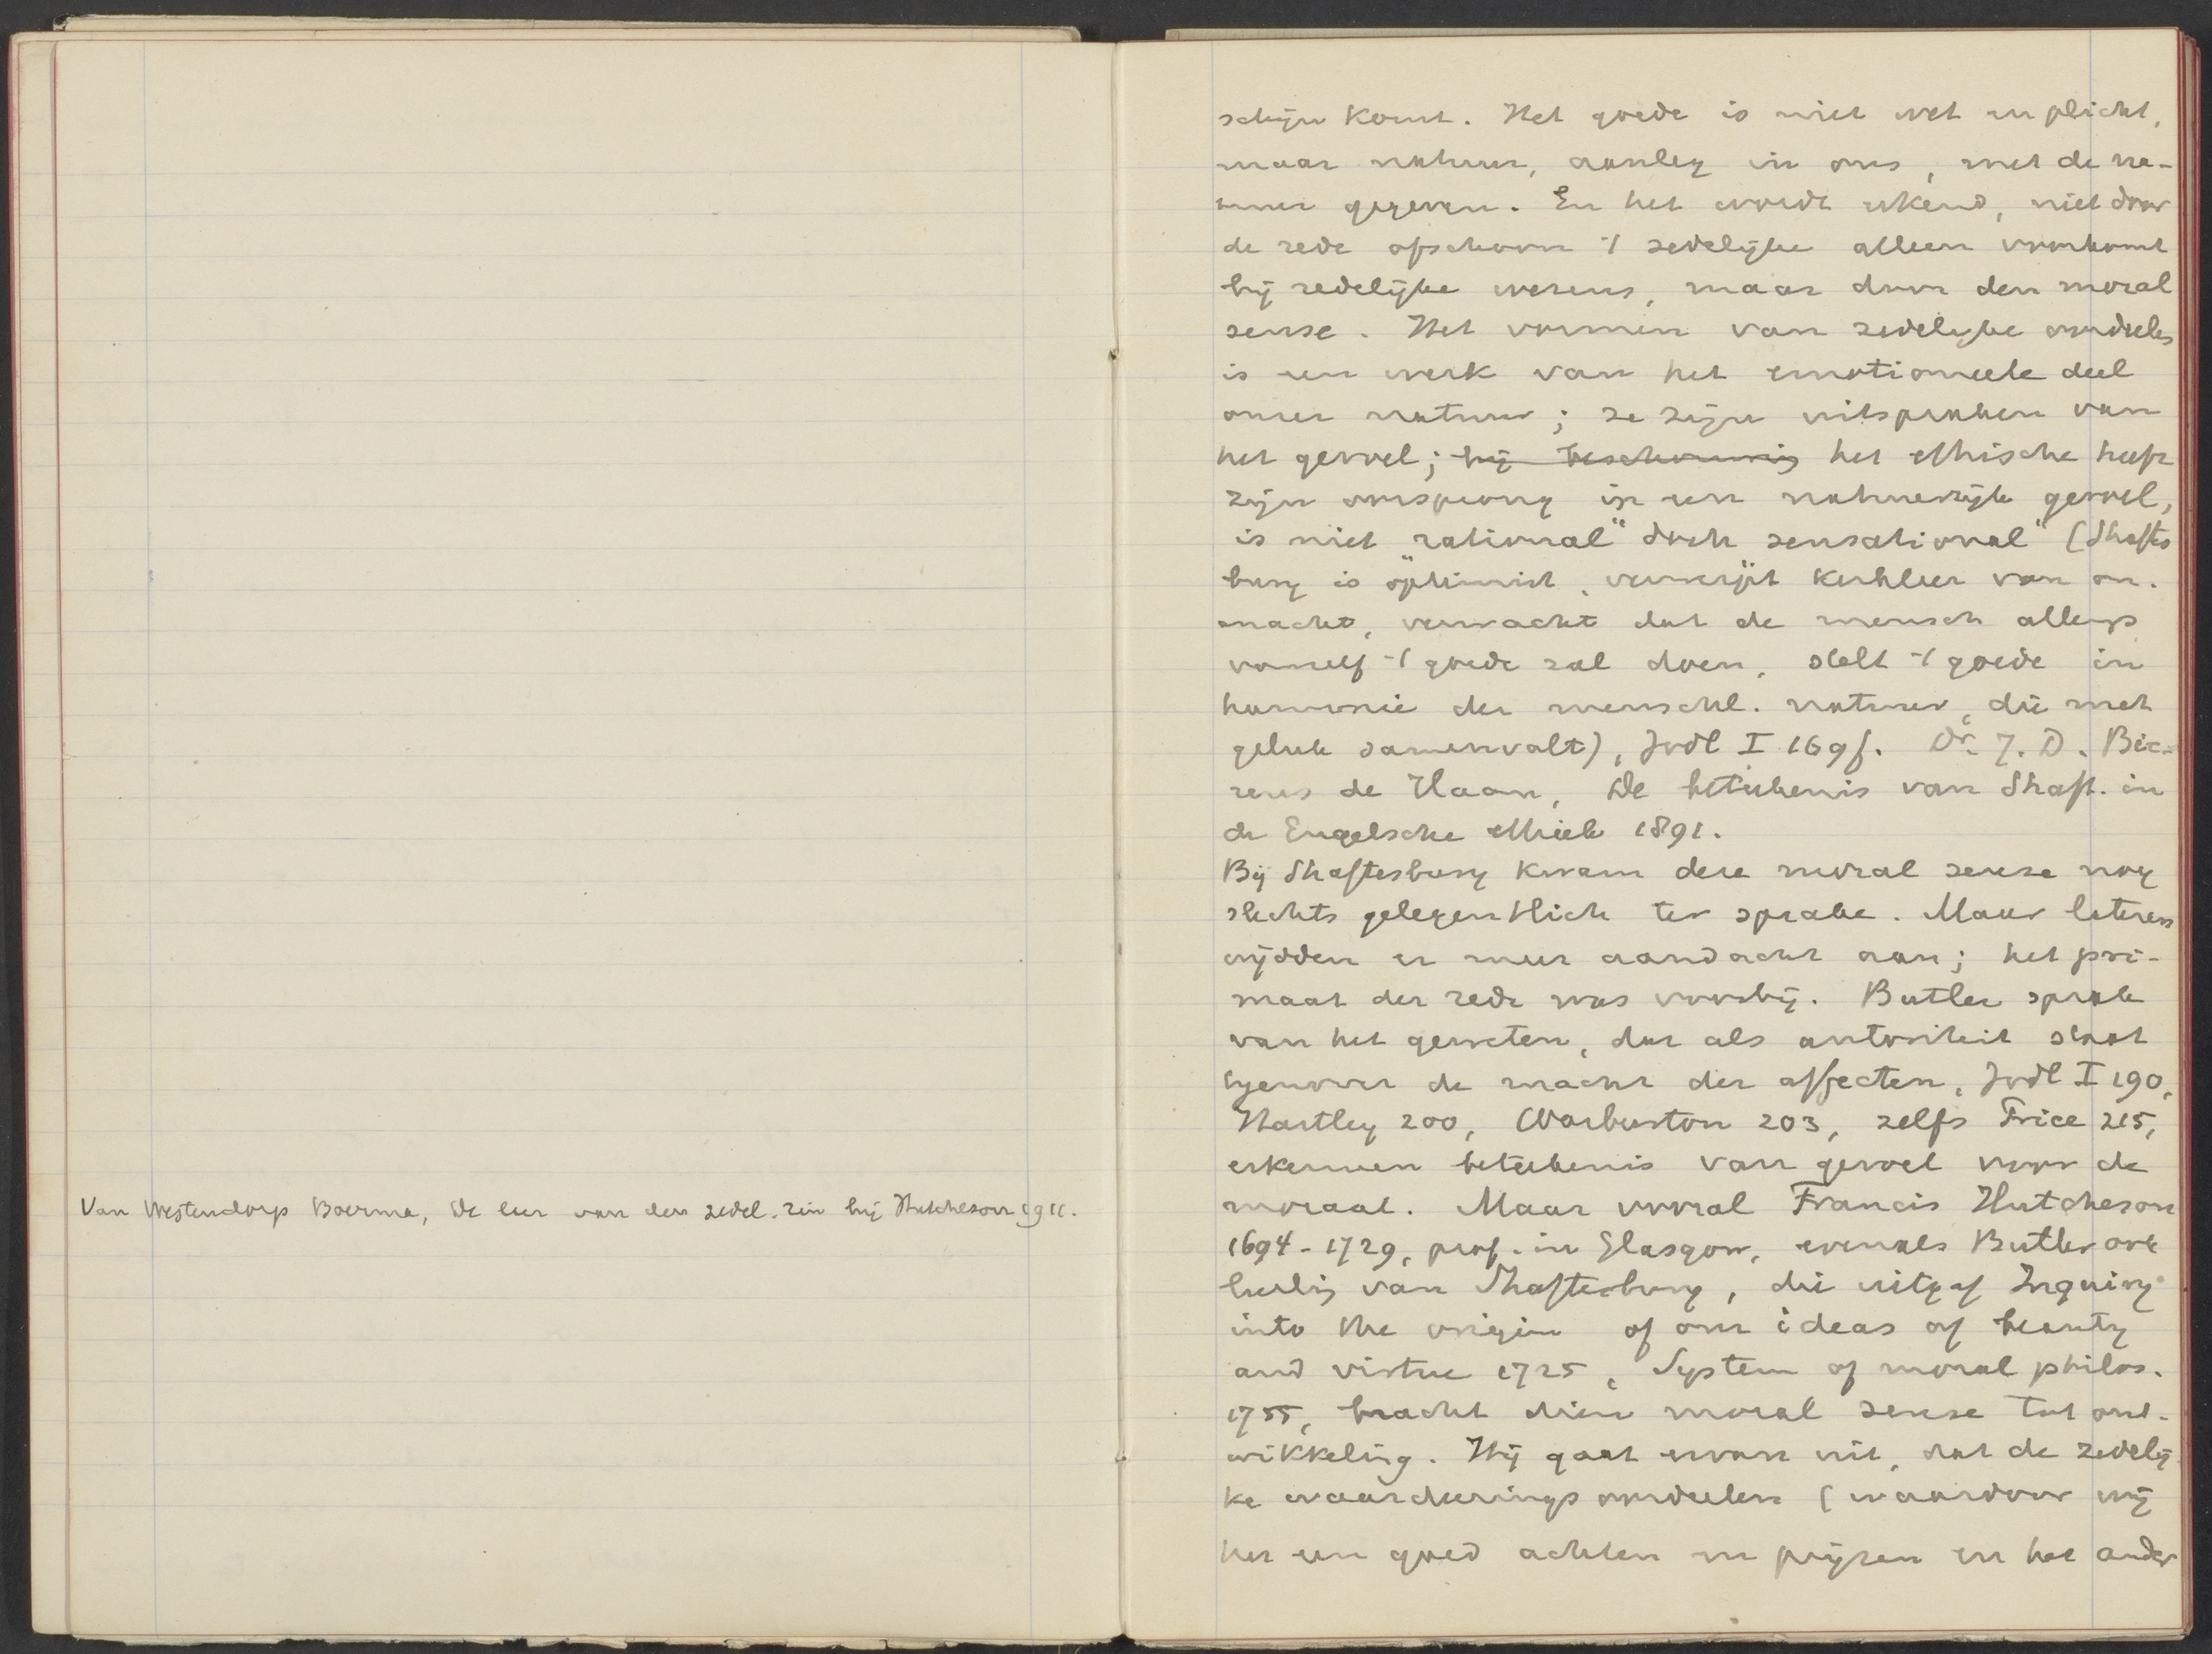 Van Westendorp Boerma, De leer van den zedel. zin bij Hutcheson 1911.
schijn komt. Het goede is niet wet en plicht,
maar natuur, aanleg in ons, met de na-
tuur gegeven. En het wordt erkend, niet door
de rede ofschoon 't zedelijke alleen voorkomt
bij redelijke wezens, maar door den moral
sense. Het vormen van zedelijke oordeelen
is een werk van het emotioneele deel
onzer natuur; ze zijn uitspraken van
het gevoel; bij beschouwing het ethische heeft
zijn oorsprong in een natuurlijk gevoel,
is niet „rational" doch „sensational" (Shaftes
bury is optimist, verwerpt kerkleer van on-
macht, verwacht dat de mensch allengs
vanzelf 't goede zal doen, stelt 't goede in
harmonie der menschl. natuur, die met
geluk samenvalt), Jodl I 169f. Dr. J. D. Bie-
rens de Haan, De beteekenis van Shaft. in
de Engelsche ethiek 1891.
Bij Shaftesbury kwam deze moral sense nog
slechts gelegentlich ter sprake. Maar lateren
wijdden er meer aandacht aan; het pri-
maat der rede was voorbij. Butler sprak
van het geweten, dat als autoriteit staat
tegenover de macht der affecten, Jodl I 190,
Hartley 200, Warburton 203, zelfs Price 215,
erkennen beteekenis van gevoel voor de
moraal. Maar vooral Francis Hutcheson
1694-1729, prof. in Glasgow, evenals Butler ook
leerling van Shaftesbury, die uitgaf Inquiry
into the origin of our ideas of beauty
and virtue 1725, System of moral philos.
1755, bracht dien moral sense tot ont-
wikkeling. Hij gaat ervan uit, dat de zedelij
ke waardeeringsoordeelen (waardoor wij
het een goed achten en prijzen en het ander